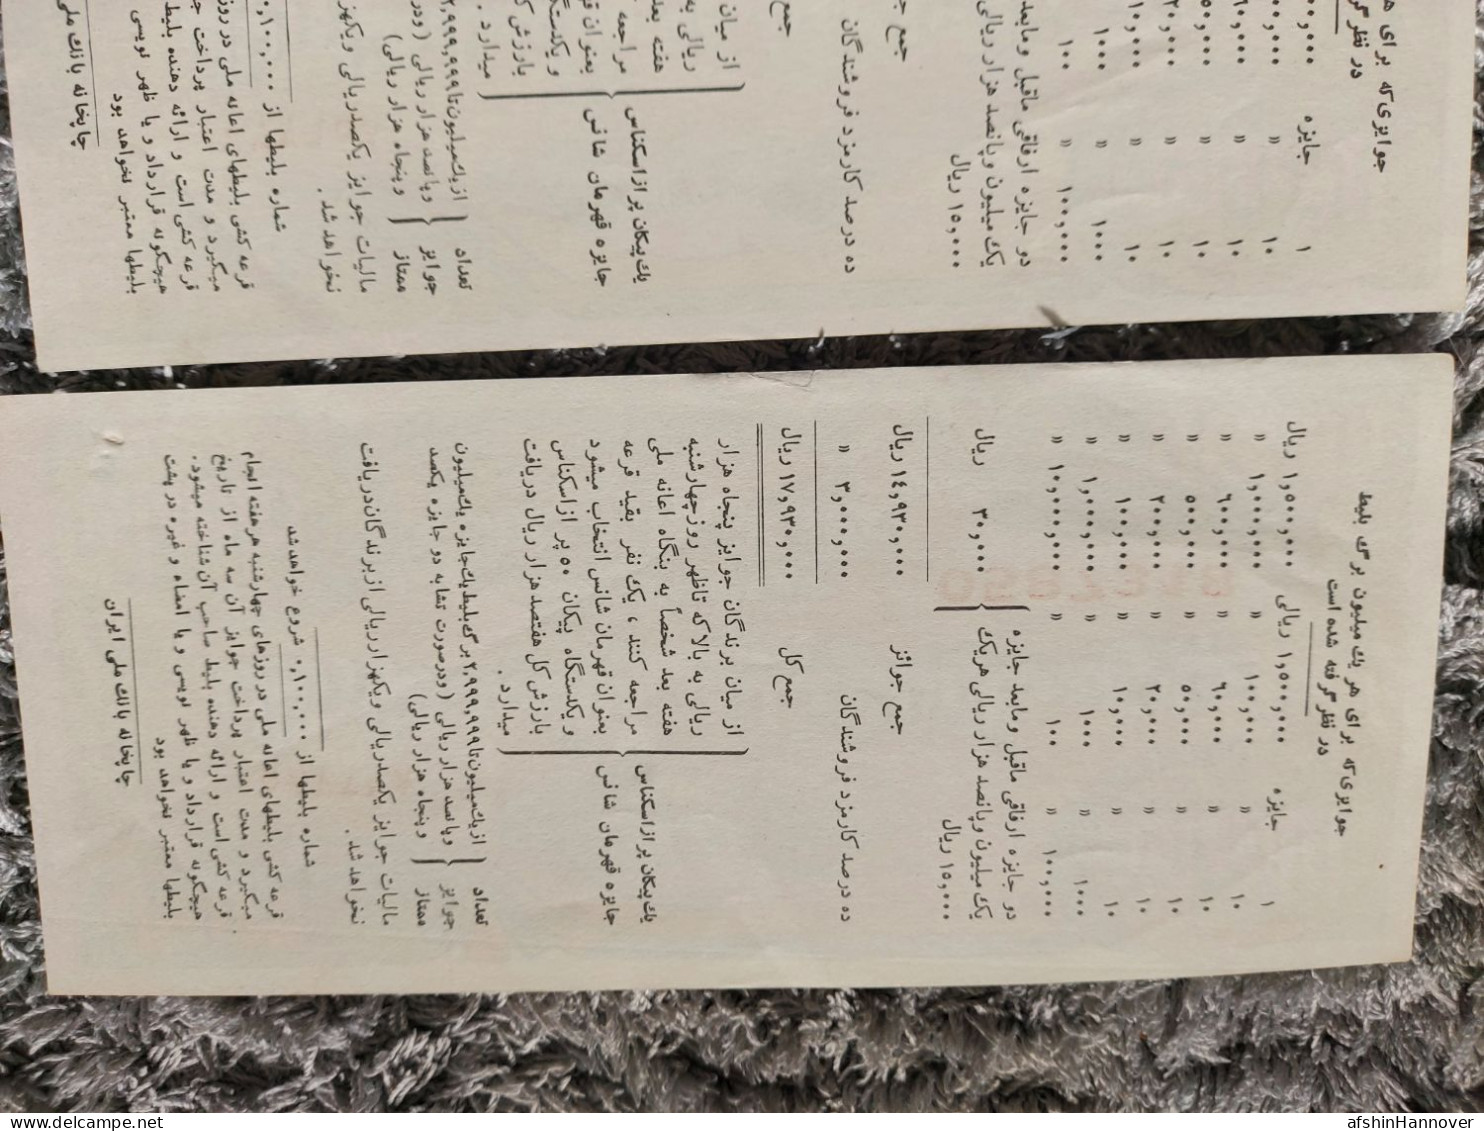 جوایزی که برای هر یک میلیون برگ بلیط
در نظر گرفته شده است
۱ جایزه ۱٫۵۰۰٫۰۰۰ ریالی ۱٫۵۰۰٫۰۰۰ ریال
۱۰ » ۱۰۰٫۰۰۰ » ۱٫۰۰۰٫۰۰۰ »
۱۰ » ۶۰٫۰۰۰ » ۶۰۰٫۰۰۰ »
۱۰ » ۵۰٫۰۰۰ » ۵۰۰٫۰۰۰ »
۱۰ » ۲۰٫۰۰۰ » ۲۰۰٫۰۰۰ »
۱۰ » ۱۰٫۰۰۰ » ۱۰۰٫۰۰۰ »
۱۰۰۰ » ۱۰۰۰ » ۱٫۰۰۰٫۰۰۰ »
۱۰۰٫۰۰۰ » ۱۰۰ » ۱۰٫۰۰۰٫۰۰۰ »
دو جایزه ارفاقی ماقبل و مابعد جایزه
یک میلیون و پانصد هزار ریالی هر یک
۱۵٫۰۰۰ ریال
۳۰٫۰۰۰ ریال
جمع جوائز ۱۴٫۹۳۰٫۰۰۰ ریال
ده درصد کارمزد فروشندگان ۳٫۰۰۰٫۰۰۰ »
جمع کل ۱۷٫۹۳۰٫۰۰۰ ریال
یک پیکان پر از اسکناس
جایزه قهرمان شانس
از میان برندگان جوایز پنجاه هزار
ریالی به بالا که تا ظهر روز چهارشنبه
هفته بعد شخصاً به بنگاه اعانه ملی
مراجعه کنند ، یک نفر بقید قرعه
بعنوان قهرمان شانس انتخاب میشود
و یکدستگاه پیکان ۵۰ پر از اسکناس
بارزش کل هفتصد هزار ریال دریافت
میدارد .
تعداد
جوایز
ممتاز
از یک میلیون تا ۲٫۹۹۹٫۹۹۹ برگ بلیط یک جایزه یک میلیون
و پانصد هزار ریالی (و در صورت تشابه دو جایزه یکصد
و پنجاه هزار ریالی)
مالیات جوایز یکصد ریالی و یکهزار ریالی از برندگان دریافت
نخواهد شد .
شماره بلیطها از ۰٫۱۰۰٫۰۰۰ شروع خواهد شد
قرعه کشی بلیطهای اعانه ملی در روزهای چهارشنبه هر هفته انجام
میگیرد و مدت اعتبار پرداخت جوایز آن سه ماه از تاریخ
قرعه کشی است و ارائه دهنده بلیط صاحب آن شناخته میشود.
هیچگونه قرارداد و یا ظهر نویسی و یا امضاء و غیره در پشت
بلیطها معتبر نخواهد بود
چاپخانه بانک ملی ایران
جوایزی که برای ه
در نظر گر
۱ جایزه
۱۰ »
۱۰ » ۶۰٫۰۰۰
۱۰ » ۵۰٫۰۰۰
۱۰ » ۲۰٫۰۰۰
۱۰ » ۱۰٫۰۰۰
۱۰۰۰ » ۱۰۰۰
۱۰۰٫۰۰۰ » ۱۰۰
دو جایزه ارفاقی ماقبل و مابعد
یک میلیون و پانصد هزار ریالی
۱۵٫۰۰۰ ریال
جمع ج
ده درصد کارمزد فروشندگان
جمع
یک پیکان پر از اسکناس
جایزه قهرمان شانس
از میان
ریالی به
هفته بعد
مراجعه
بعنوان ق
و یکدستگ
بارزش ک
میدارد .
تعداد
جوایز
ممتاز
از یک میلیون تا ۲٫۹۹۹٫۹۹۹
و پانصد هزار ریالی (و در
و پنجاه هزار ریالی)
مالیات جوایز یکصد ریالی و یکهز
نخواهد شد .
شماره بلیطها از ۰٫۱۰۰٫۰۰۰
قرعه کشی بلیطهای اعانه ملی در روز
میگیرد و مدت اعتبار پرداخت ج
قرعه کشی است و ارائه دهنده بلیط
هیچگونه قرارداد و یا ظهر نویسی
بلیطها معتبر نخواهد بود
چاپخانه بانک ملی
delcampe.net
afshinHannover